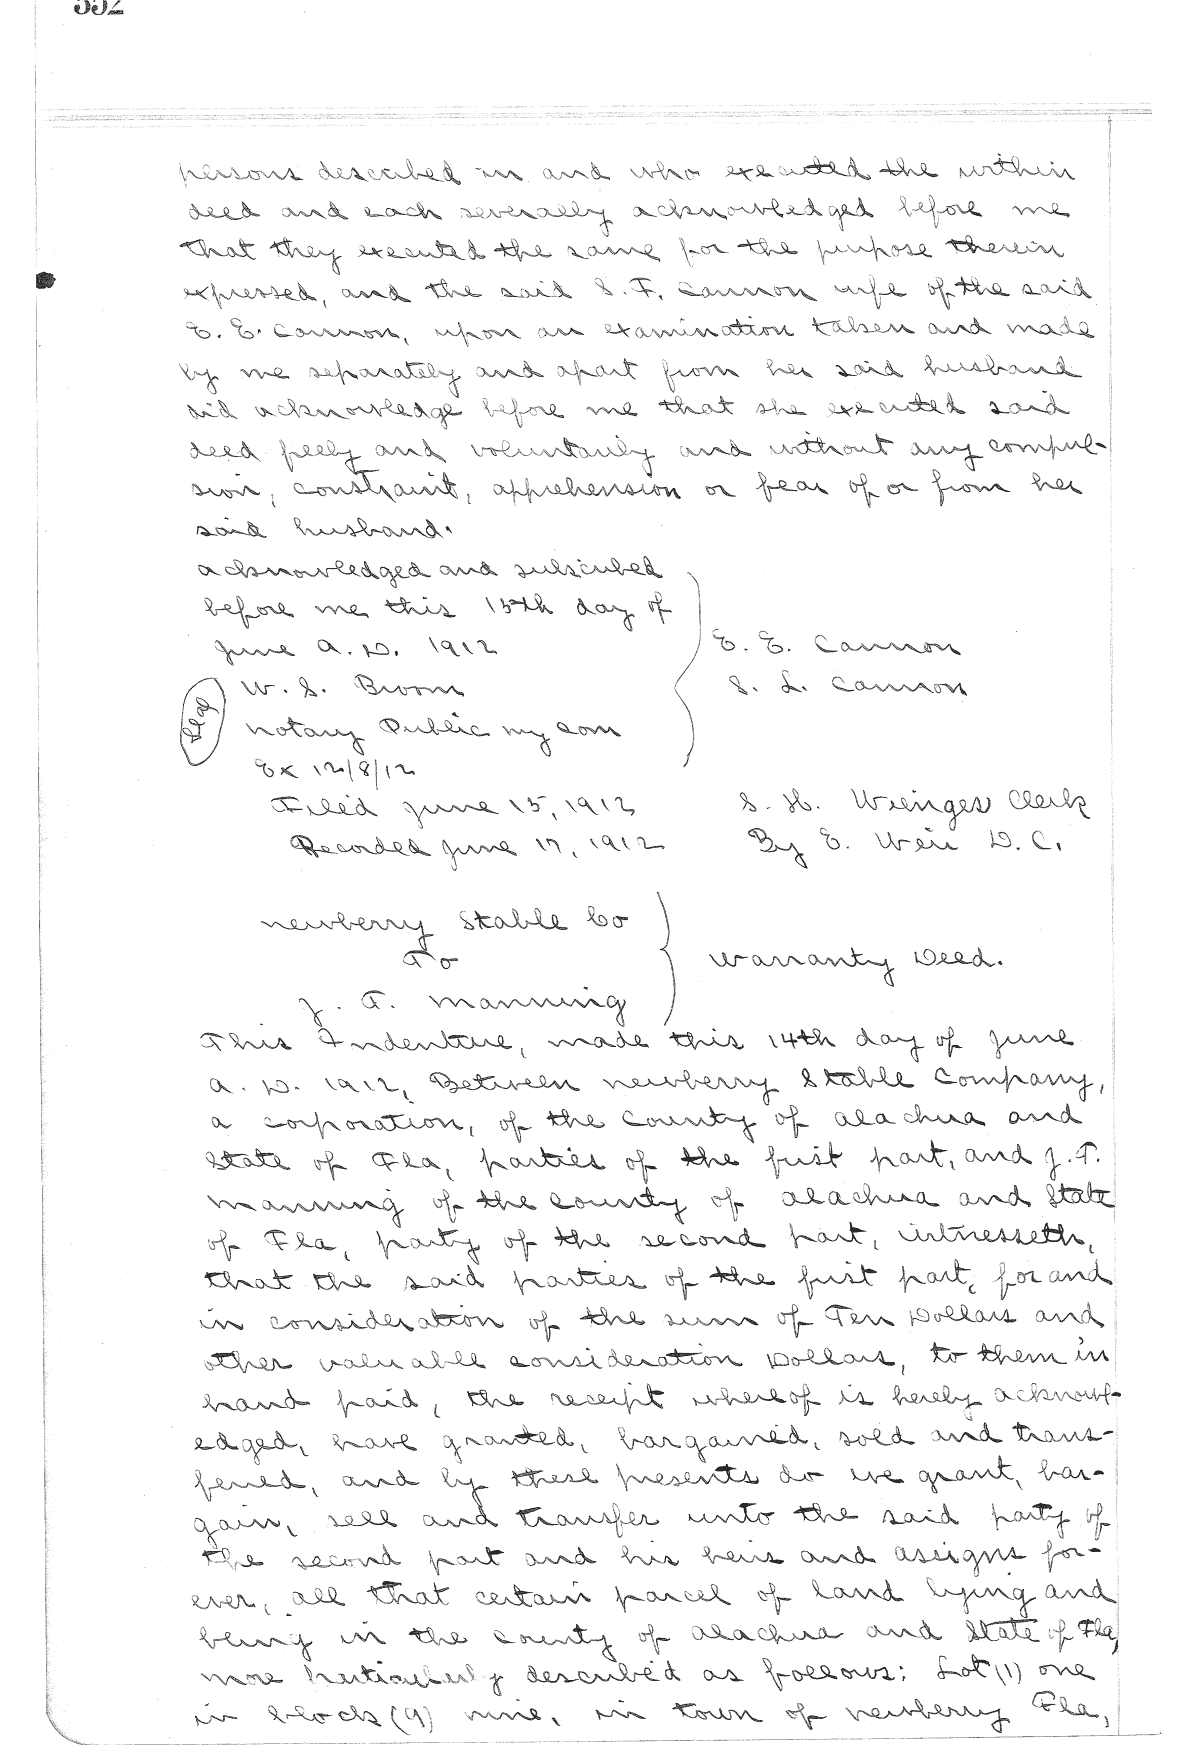 332
persons described in and who executed the within
deed and each severally acknowledged before me
that they executed the same for the purpose therein
expressed, and the said S. F. Cannon wife of the said
E. E. Cannon, upon an examination taken and made
by me separately and apart from her said husband
did acknowledge before me that she executed said
deed freely and voluntarily and without any compul-
sion, constraint, apprehension or fear of or from her
said husband.
acknowledged and subscribed
before me this 15th day of
June A. D. 1912
E. E. Cannon
W. S. Broom
S. L. Cannon
Seal
Notary Public my com
Ex 12/8/12
Filed June 15, 1912 S. H. Wienges Clerk
Recorded June 17, 1912 By E. Weir D. C.
Newberry Stable Co
To
Warranty Deed.
J. T. Manning
This Indenture, made this 14th day of June
A. D. 1912, Between Newberry Stable Company,
a corporation, of the County of Alachua and
State of Fla, parties of the first part, and J. T.
Manning of the County of Alachua and State
of Fla, party of the second part, witnesseth,
that the said parties of the first part, for and
in consideration of the sum of Ten Dollars and
other valuable consideration Dollars, to them in
hand paid, the receipt whereof is hereby acknowl-
edged, have granted, bargained, sold and trans-
ferred, and by these presents do we grant, bar-
gain, sell and transfer unto the said party of
the second part and his heirs and assigns for-
ever, all that certain parcel of land lying and
being in the County of Alachua and State of Fla,
more particularly described as follows: Lot (1) one
in block (9) nine, in town of Newberry Fla,